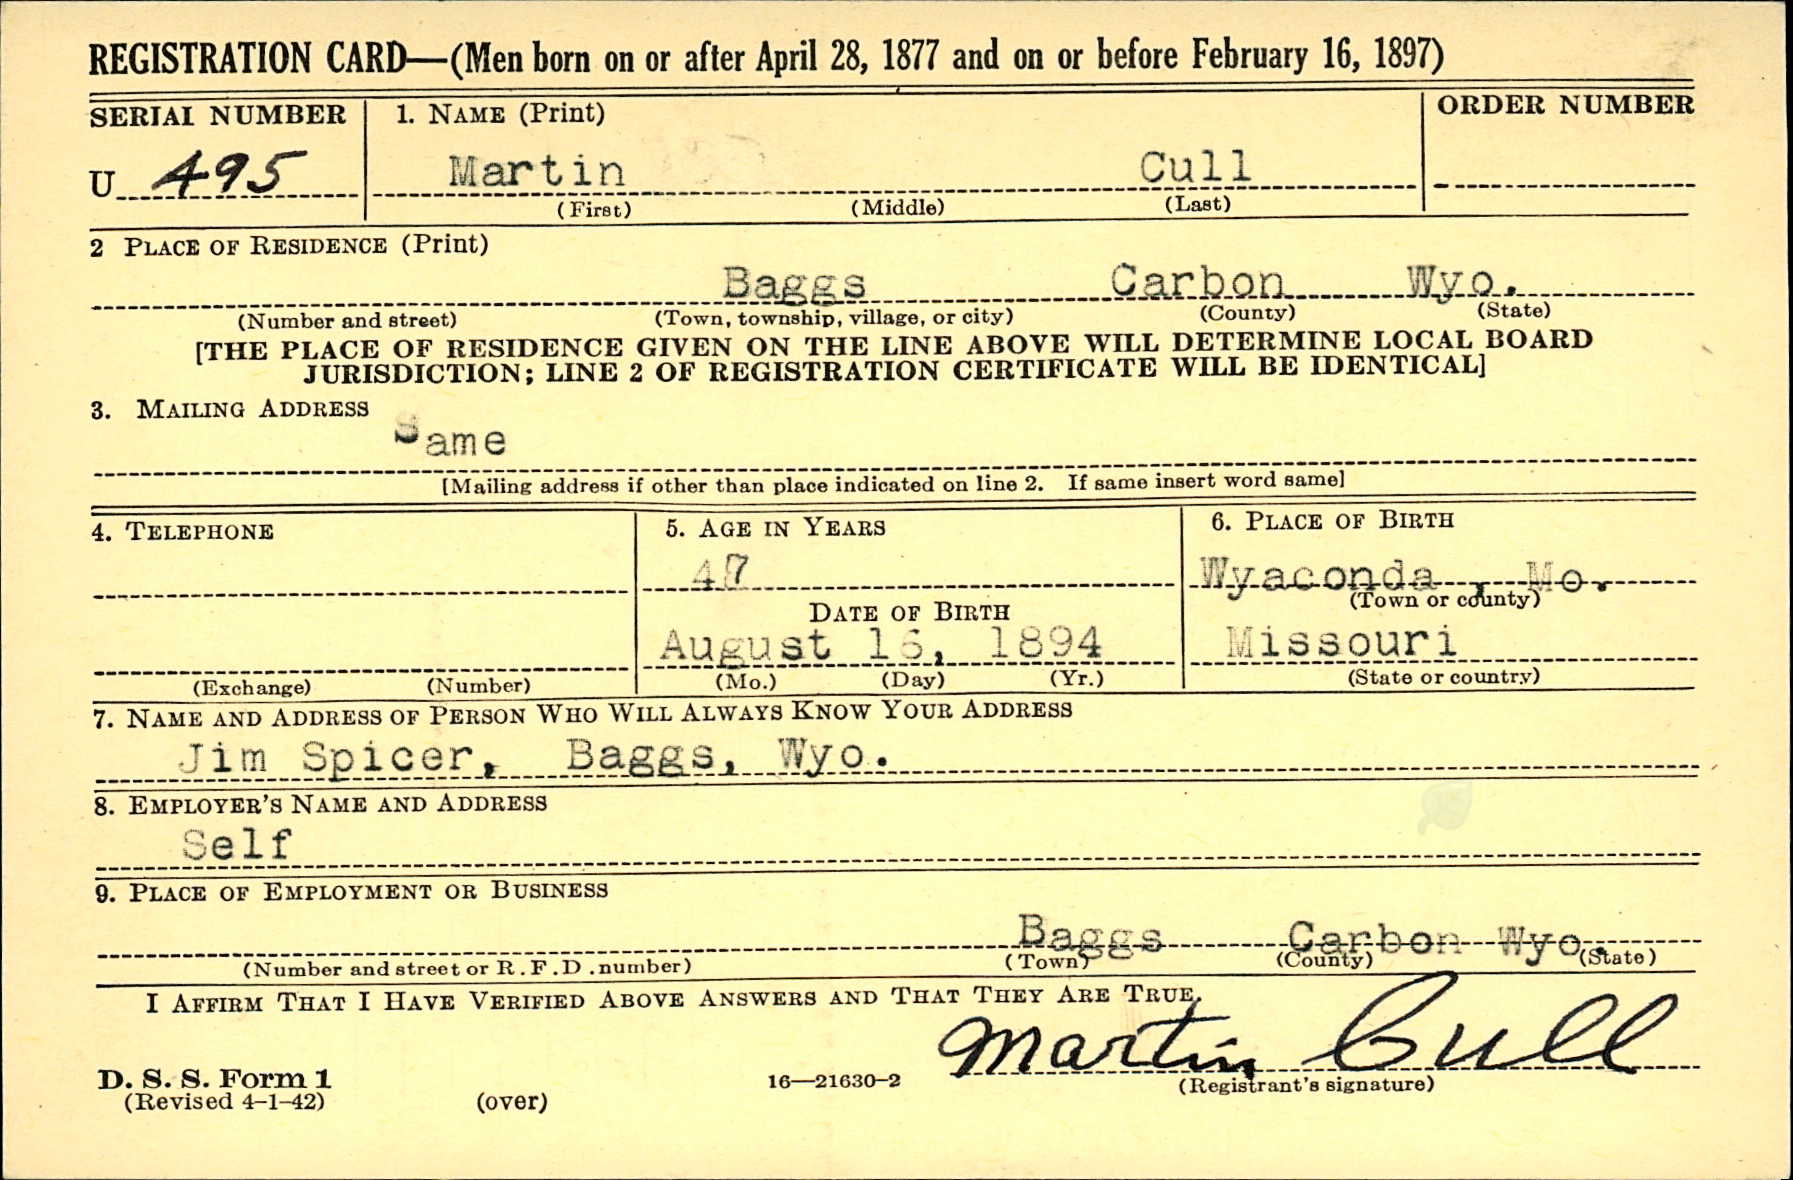 REGISTRATION CARD—(Men born on or after April 28, 1877 and on or before February 16, 1897)
SERIAL NUMBER 1. NAME (Print) ORDER NUMBER
U 495 Martin Cull
(First) (Middle) (Last)
2 PLACE OF RESIDENCE (Print)
Baggs Carbon Wyo.
(Number and street) (Town, township, village, or city) (County) (State)
[THE PLACE OF RESIDENCE GIVEN ON THE LINE ABOVE WILL DETERMINE LOCAL BOARD
JURISDICTION; LINE 2 OF REGISTRATION CERTIFICATE WILL BE IDENTICAL]
3. MAILING ADDRESS
Same
[Mailing address if other than place indicated on line 2. If same insert word same]
4. TELEPHONE 5. AGE IN YEARS 6. PLACE OF BIRTH
47 Wyaconda , Mo.
(Town or county)
DATE OF BIRTH
August 16, 1894 Missouri
(Exchange) (Number) (Mo.) (Day) (Yr.) (State or country)
7. NAME AND ADDRESS OF PERSON WHO WILL ALWAYS KNOW YOUR ADDRESS
Jim Spicer, Baggs, Wyo.
8. EMPLOYER'S NAME AND ADDRESS
Self
9. PLACE OF EMPLOYMENT OR BUSINESS
Baggs Carbon Wyo.
(Number and street or R.F.D.number) (Town) (County) (State)
I AFFIRM THAT I HAVE VERIFIED ABOVE ANSWERS AND THAT THEY ARE TRUE.
Martin Cull
D. S. S. Form 1 16—21630-2 (Registrant's signature)
(Revised 4-1-42) (over)